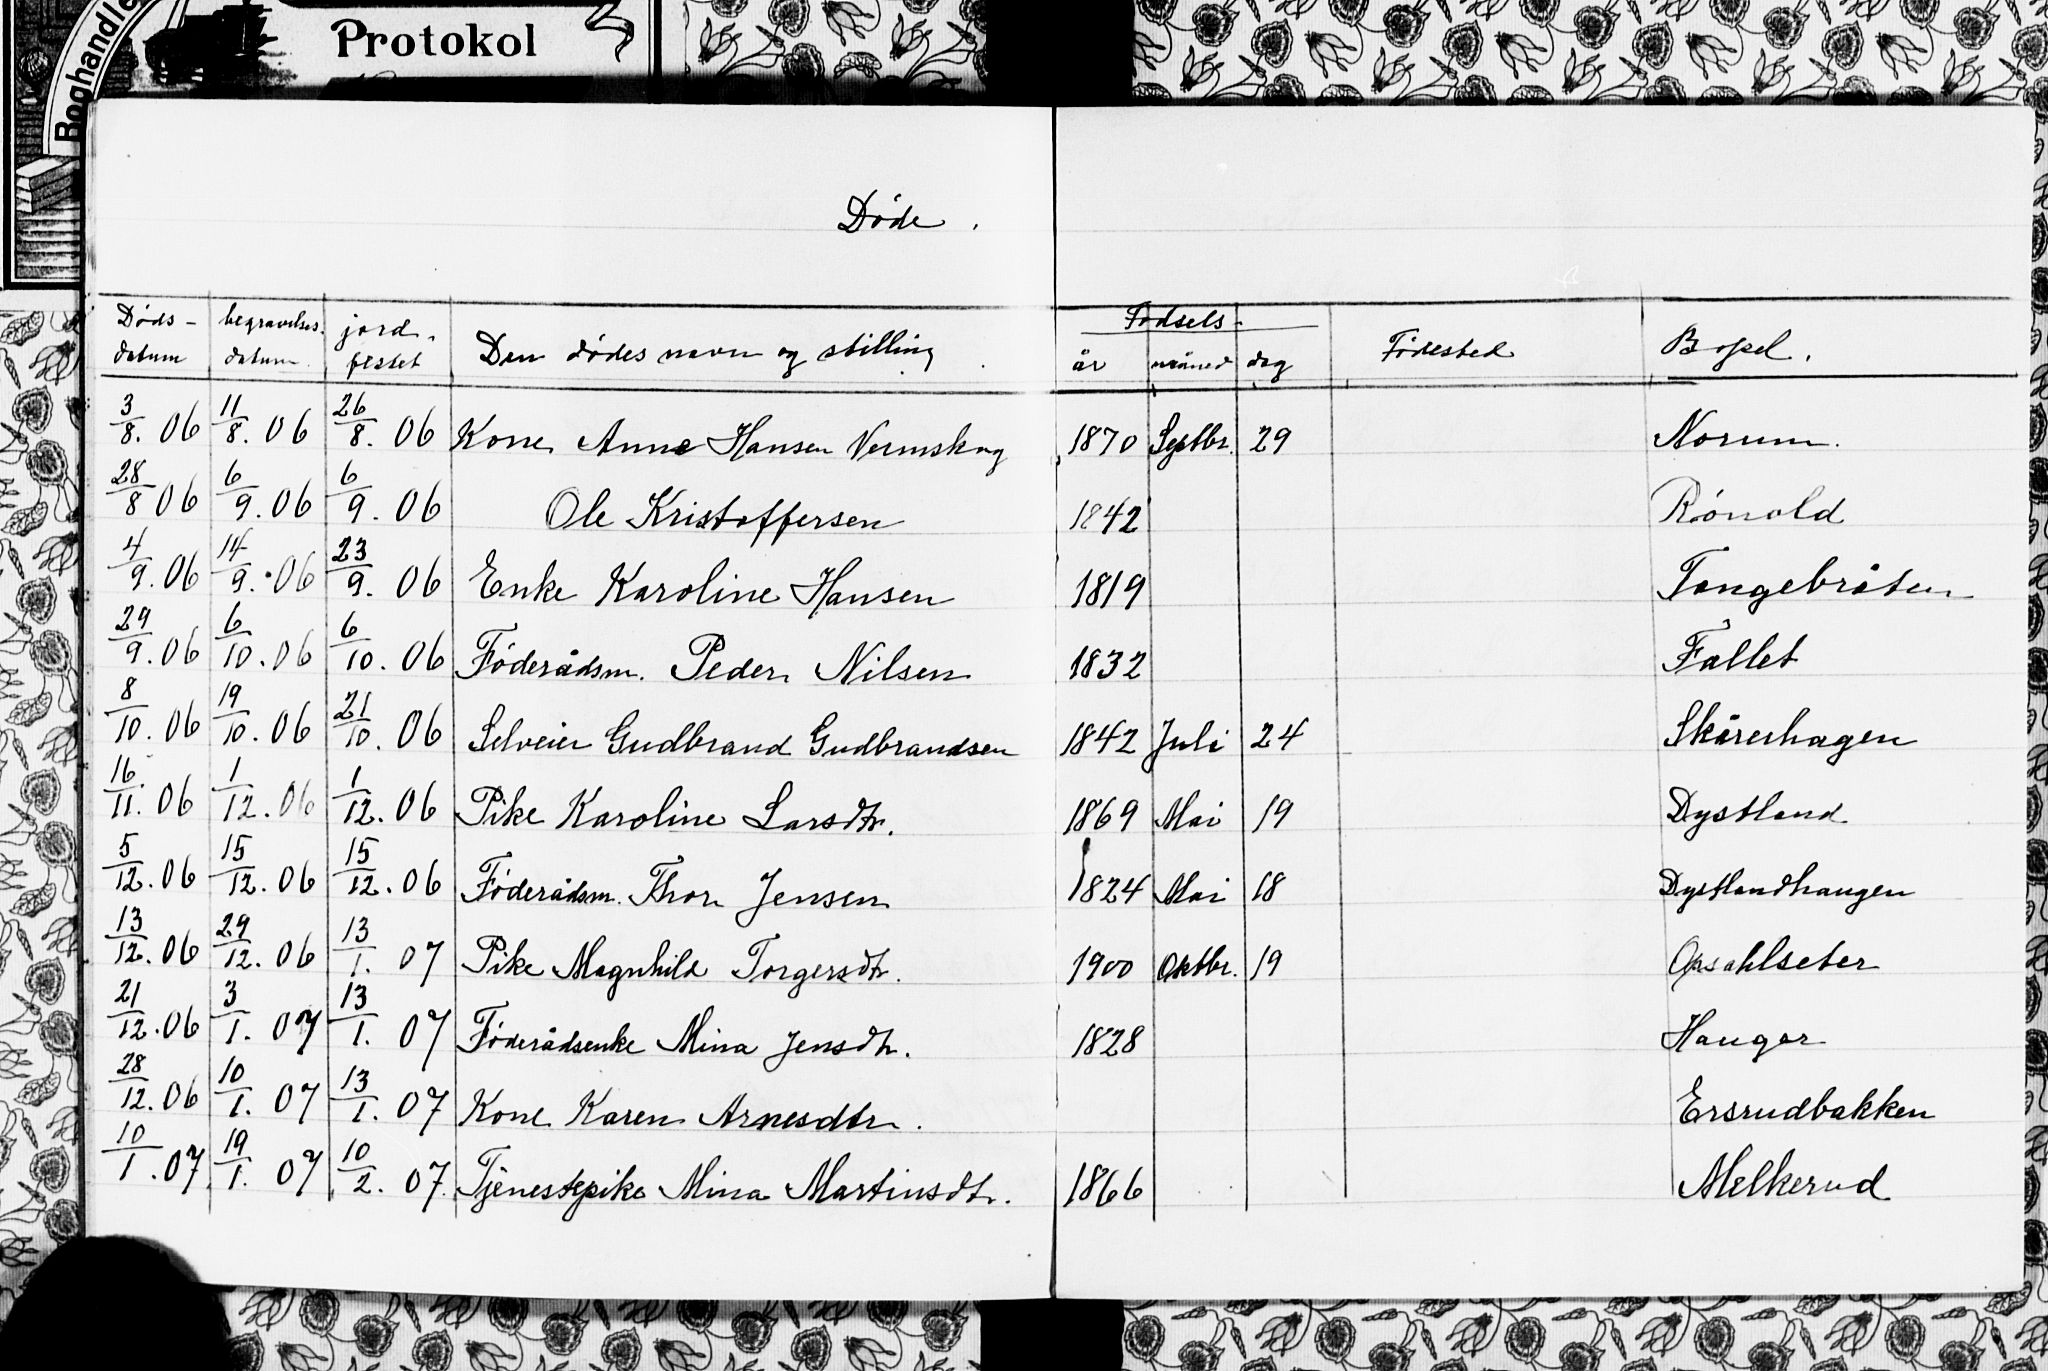 Boghandle
Protokol
Døde.
Døds- begravelses- jord- Fødsels-
datum datum festet Den dødes navn og stilling år måned dag Fødested Bopel.
3/8. 06 11/8. 06 26/8. 06 Kone Anne Hansen Vermskog 1870 Septbr. 29 Norum.
28/8 06 6/9. 06 6/9. 06 Ole Kristoffersen 1842 Rönold
4/9. 06 14/9. 06 23/9. 06 Enke Karoline Hansen 1819 Tangebråten
29/9. 06 6/10. 06 6/10. 06 Föderådsm. Peder Nilsen 1832 Fallet
8/10. 06 19/10. 06 21/10. 06 Selveier Gudbrand Gudbrandsen 1842 Juli 24 Skårerhagen
16/11. 06 1/12. 06 1/12. 06 Pike Karoline Larsdtr. 1869 Mai 19 Dystland
5/12. 06 15/12. 06 15/12. 06 Föderådsm. Thor Jensen 1824 Mai 18 Dystlandhaugen
13/12. 06 29/12. 06 13/1. 07 Pike Magnhild Torgersdtr. 1900 Oktbr. 19 Opsahlseter
21/12. 06 3/1. 07 13/1. 07 Föderådsenke Mina Jensdtr. 1828 Hauger
28/12. 06 10/1. 07 13/1. 07 Kone Karen Arnesdtr. Ersrudbakken
10/1. 07 19/1. 07 10/2. 07. Tjenestepike Mina Martinsdtr. 1866 Melkerud